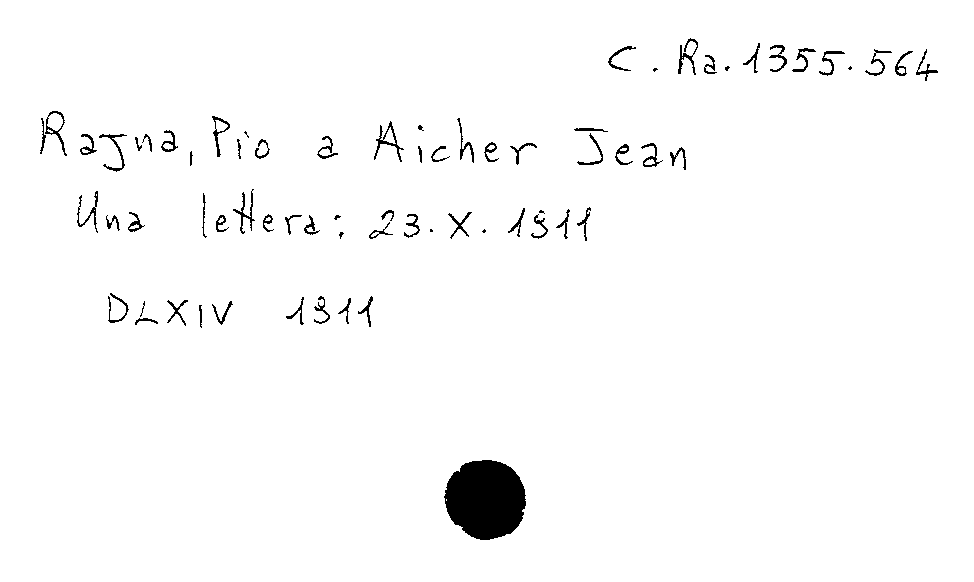 C. Ra. 1355. 564
Rajna, Pio a Aicher Jean
Una lettera: 23. X. 1911
DLXIV 1911